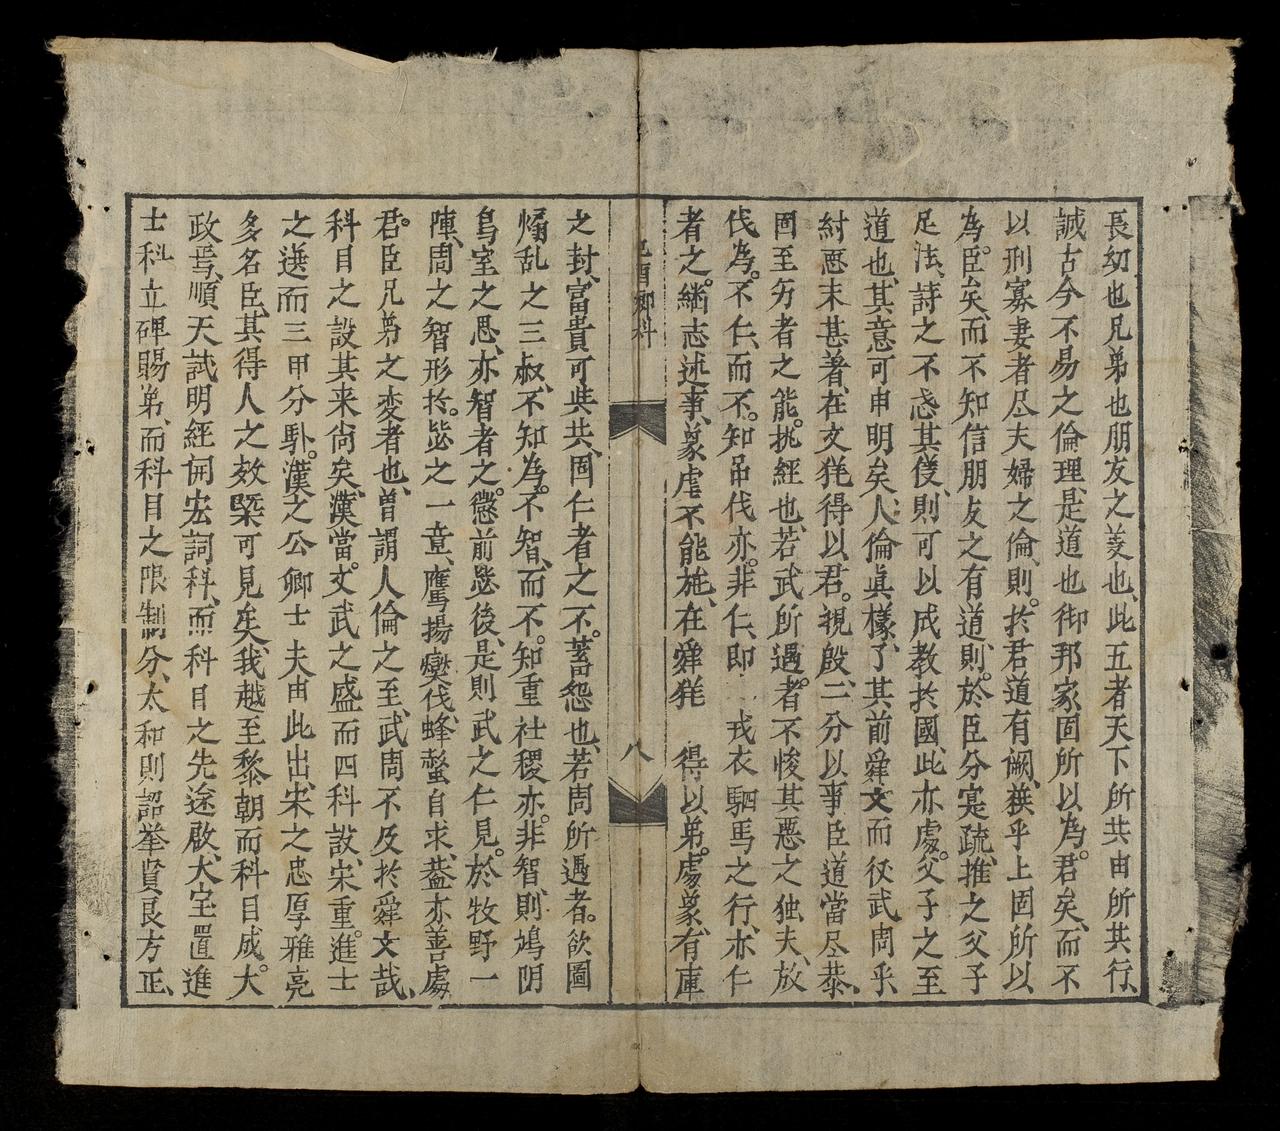 長幼也兄弟也朋友之交也此五者天下所共由所共行
誠古今不易之倫理是道也御邦家固所以為君矣而不
以刑寡妻者尽夫婦之倫則扵君道有闕狹乎上固所以
為臣矣而不知信朋友之有道則於臣分寔疏推之父子
足法詩之不忒其儀則可以成教扵國此亦處父子之至
道也其意可申明矣人倫真樣了其前舜文而後武周乎
紂惡未甚著在文犹得以君視殷二分以事臣道當尽恭
固至労者之能執經也若武所遇者不悛其惡之独夫放
伐為不仁而不知吊伐亦非仁即戎衣駟馬之行亦仁
者之継志述事象虐不能施在舜犹得以弟處象有庫
己酉鄉科
八
之封富貴可共共固仁者之不蓄怨也若周所遇者欲圖
煽乱之三叔不知為不智而不知重社稷亦非智則鴆閉
鳥室之思亦智者之懲前毖後是則武之仁見於牧野一
陣周之智形扵毖之一章鷹揚燮伐蜂螫自求盖亦善處
君臣兄弟之变者也曽謂人倫之至武周不及扵舜文哉
科目之設其来尚矣漢當文武之盛而四科設宋重進士
之選而三甲分馱漢之公卿士夫由此出宋之忠厚雅亮
多名臣其得人之效槩可見矣我越至黎朝而科目成大
政焉順天試明經開宏詞科而科目之先途啟大宝置進
士科立碑賜弟而科目之限制分太和則詔举賢良方正